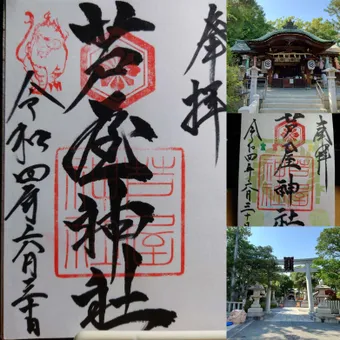 奉拝
芦屋神社
令和四年六月三十日
芦屋神社
奉拝
芦屋神社
令和四年六月三十日